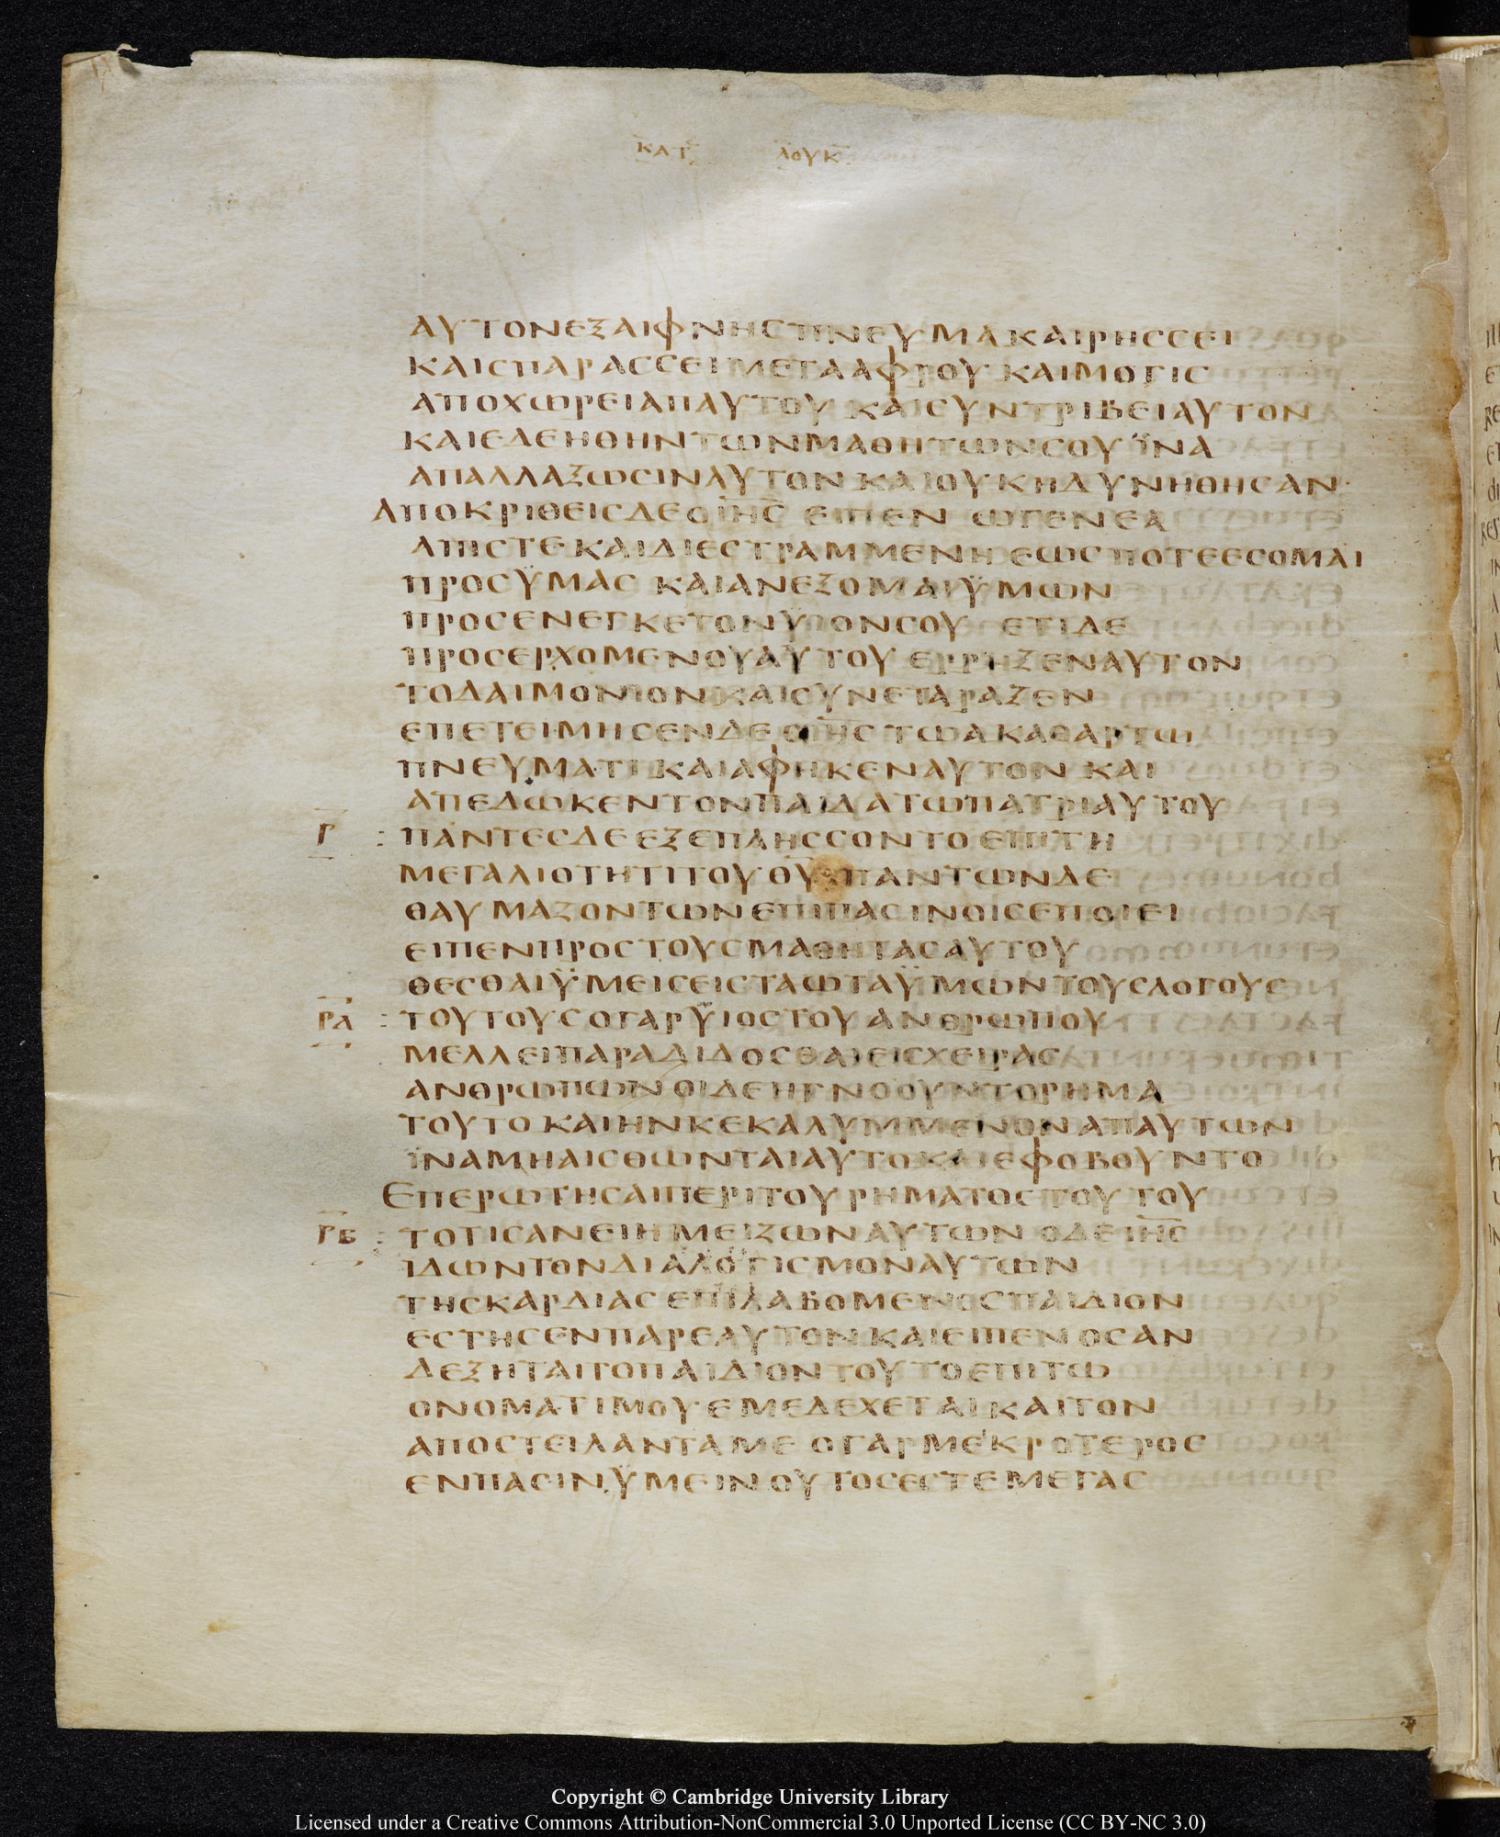 ΚΑΤ ΛΟΥΚ
ΑΥΤΟΝΕΞΑΙΦΝΗϹΠΝΕΥΜΑΚΑΙΡΗϹϹΕΙ
ΚΑΙϹΠΑΡΑϹϹΕΙΜΕΤΑΑΦΡΟΥ ΚΑΙΜΟΓΙϹ
ΑΠΟΧΩΡΕΙΑΠΑΥΤΟΥ ΚΑΙϹΥΝΤΡΙΒΕΙΑΥΤΟΝ
ΚΑΙΕΔΕΗΘΗΝΤΩΝΜΑΘΗΤΩΝϹΟΥ ΪΝΑ
ΑΠΑΛΛΑΞΩϹΙΝΑΥΤΟΝ ΚΑΙΟΥΚΗΔΥΝΗΘΗϹΑΝ·
ΑΠΟΚΡΙΘΕΙϹΔΕΟΙΗϹ ΕΙΠΕΝ ΩΓΕΝΕΑ
ΑΠΙϹΤΕ ΚΑΙΔΙΕϹΤΡΑΜΜΕΝΗ ΕΩϹΠΟΤΕΕϹΟΜΑΙ
ΠΡΟϹΫΜΑϹ ΚΑΙΑΝΕΞΟΜΑΙΫΜΩΝ
ΠΡΟϹΕΝΕΓΚΕΤΟΝΥΙΟΝϹΟΥ ΕΤΙΔΕ
ΠΡΟϹΕΡΧΟΜΕΝΟΥΑΥΤΟΥ ΕΡΡΗΞΕΝΑΥΤΟΝ
ΤΟΔΑΙΜΟΝΙΟΝ ΚΑΙϹΥΝΕΤΑΡΑΞΕΝ
ΕΠΕΤΕΙΜΗϹΕΝΔΕ ΟΙΗϹ ΤΩΑΚΑΘΑΡΤΩ
ΠΝΕΥΜΑΤΙ ΚΑΙΑΦΗΚΕΝΑΥΤΟΝ ΚΑΙ
ΑΠΕΔΩΚΕΝΤΟΝΠΑΙΔΑΤΩΠΑΤΡΙΑΥΤΟΥ
Ρ : ΠΑΝΤΕϹΔΕ ΕΞΕΠΛΗϹϹΟΝΤΟ ΕΠΙΤΗ
ΜΕΓΑΛΙΟΤΗΤΙΤΟΥ ΘΥ ΠΑΝΤΩΝΔΕ
ΘΑΥΜΑΖΟΝΤΩΝΕΠΙΠΑϹΙΝΟΙϹΕΠΟΙΕΙ
ΕΙΠΕΝΠΡΟϹΤΟΥϹΜΑΘΗΤΑϹΑΥΤΟΥ
ΘΕϹΘΑΙΫΜΕΙϹΕΙϹΤΑΩΤΑΫΜΩΝΤΟΥϹΛΟΓΟΥϹ
ΡΑ : ΤΟΥΤΟΥϹΟΓΑΡΫΙΟϹΤΟΥ ΑΝΘΡΩΠΟΥ
ΜΕΛΛΕΙΠΑΡΑΔΙΔΟϹΘΑΙΕΙϹΧΕΙΡΑϹ
ΑΝΘΡΩΠΩΝ ΟΙΔΕΗΓΝΟΟΥΝΤΟΡΗΜΑ
ΤΟΥΤΟ ΚΑΙΗΝΚΕΚΑΛΥΜΜΕΝΟΝΑΠΑΥΤΩΝ
ΪΝΑΜΗΑΙϹΘΩΝΤΑΙΑΥΤΟΚΑΙΕΦΟΒΟΥΝΤΟ
ΕΠΕΡΩΤΗϹΑΙΠΕΡΙΤΟΥΡΗΜΑΤΟϹΤΟΥΤΟΥ
ΡΒ : ΤΟΤΙϹΑΝΕΙΗΜΕΙΖΩΝΑΥΤΩΝ ΟΔΕΙΗϹ
ΪΔΩΝΤΟΝΔΙΑΛΟΓΙϹΜΟΝΑΥΤΩΝ
ΤΗϹΚΑΡΔΙΑϹ ΕΠΙΛΑΒΟΜΕΝΟϹΠΑΙΔΙΟΝ
ΕϹΤΗϹΕΝΠΑΡΕΑΥΤΟΝ ΚΑΙΕΙΠΕΝ ΟϹΑΝ
ΔΕΞΗΤΑΙΤΟΠΑΙΔΙΟΝΤΟΥΤΟΕΠΙΤΩ
ΟΝΟΜΑΤΙΜΟΥ ΕΜΕΔΕΧΕΤΑΙ ΚΑΙΤΟΝ
ΑΠΟϹΤΕΙΛΑΝΤΑΜΕ ΟΓΑΡΜΕΙΚΡΟΤΕΡΟϹ
ΕΝΠΑϹΙΝΫΜΕΙΝ ΟΥΤΟϹΕϹΤΕΜΕΓΑϹ
Copyright © Cambridge University Library
Licensed under a Creative Commons Attribution-NonCommercial 3.0 Unported License (CC BY-NC 3.0)